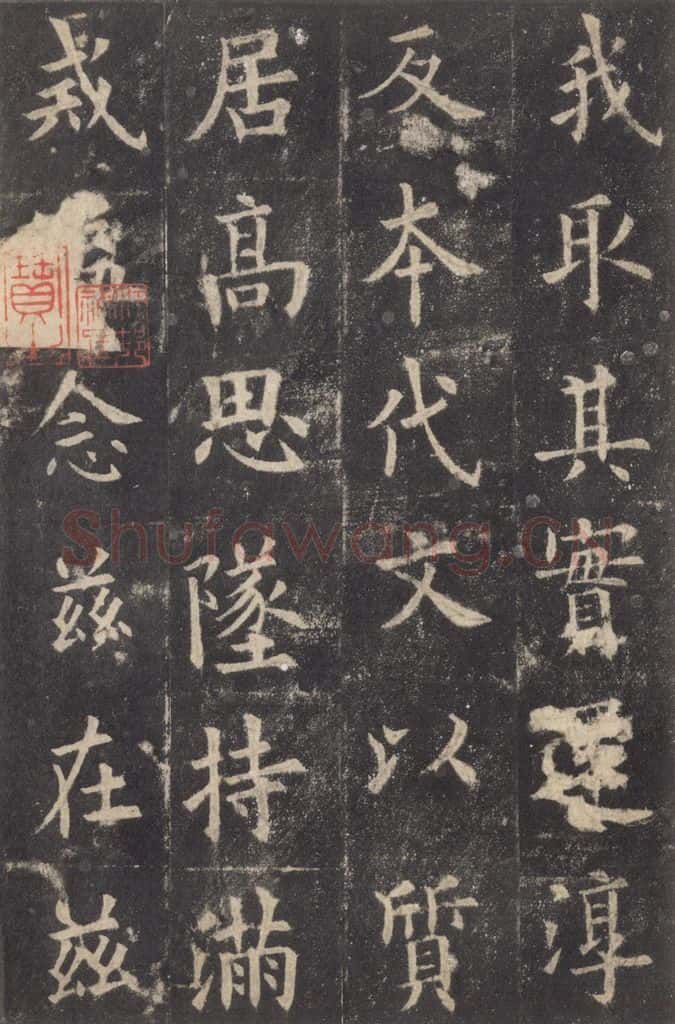 我取其實還淳
反本代文以質
居髙思墜持滿
戒念兹在兹
Shufawang.cn